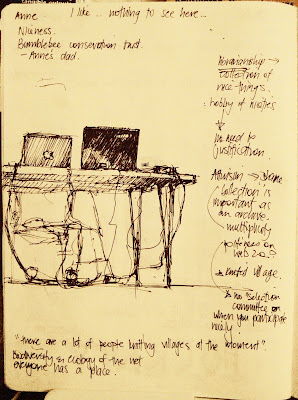 Anne
I like .. nothing to see here ..
Niceness.
Bumblebee conservation trust.
- Anne's dad.
collection of
nice things.
: hobby of niceties
no need to
justification.
Altruism → Divine
Collection is
important as
an archive.
multiplicity
on
web 2.0?
knitted village.
no selection
committee on
when you participate
nicely.
"there are a lot of people knitting villages at the moment"
Biodiversity & ecology of the net
everyone has a place.